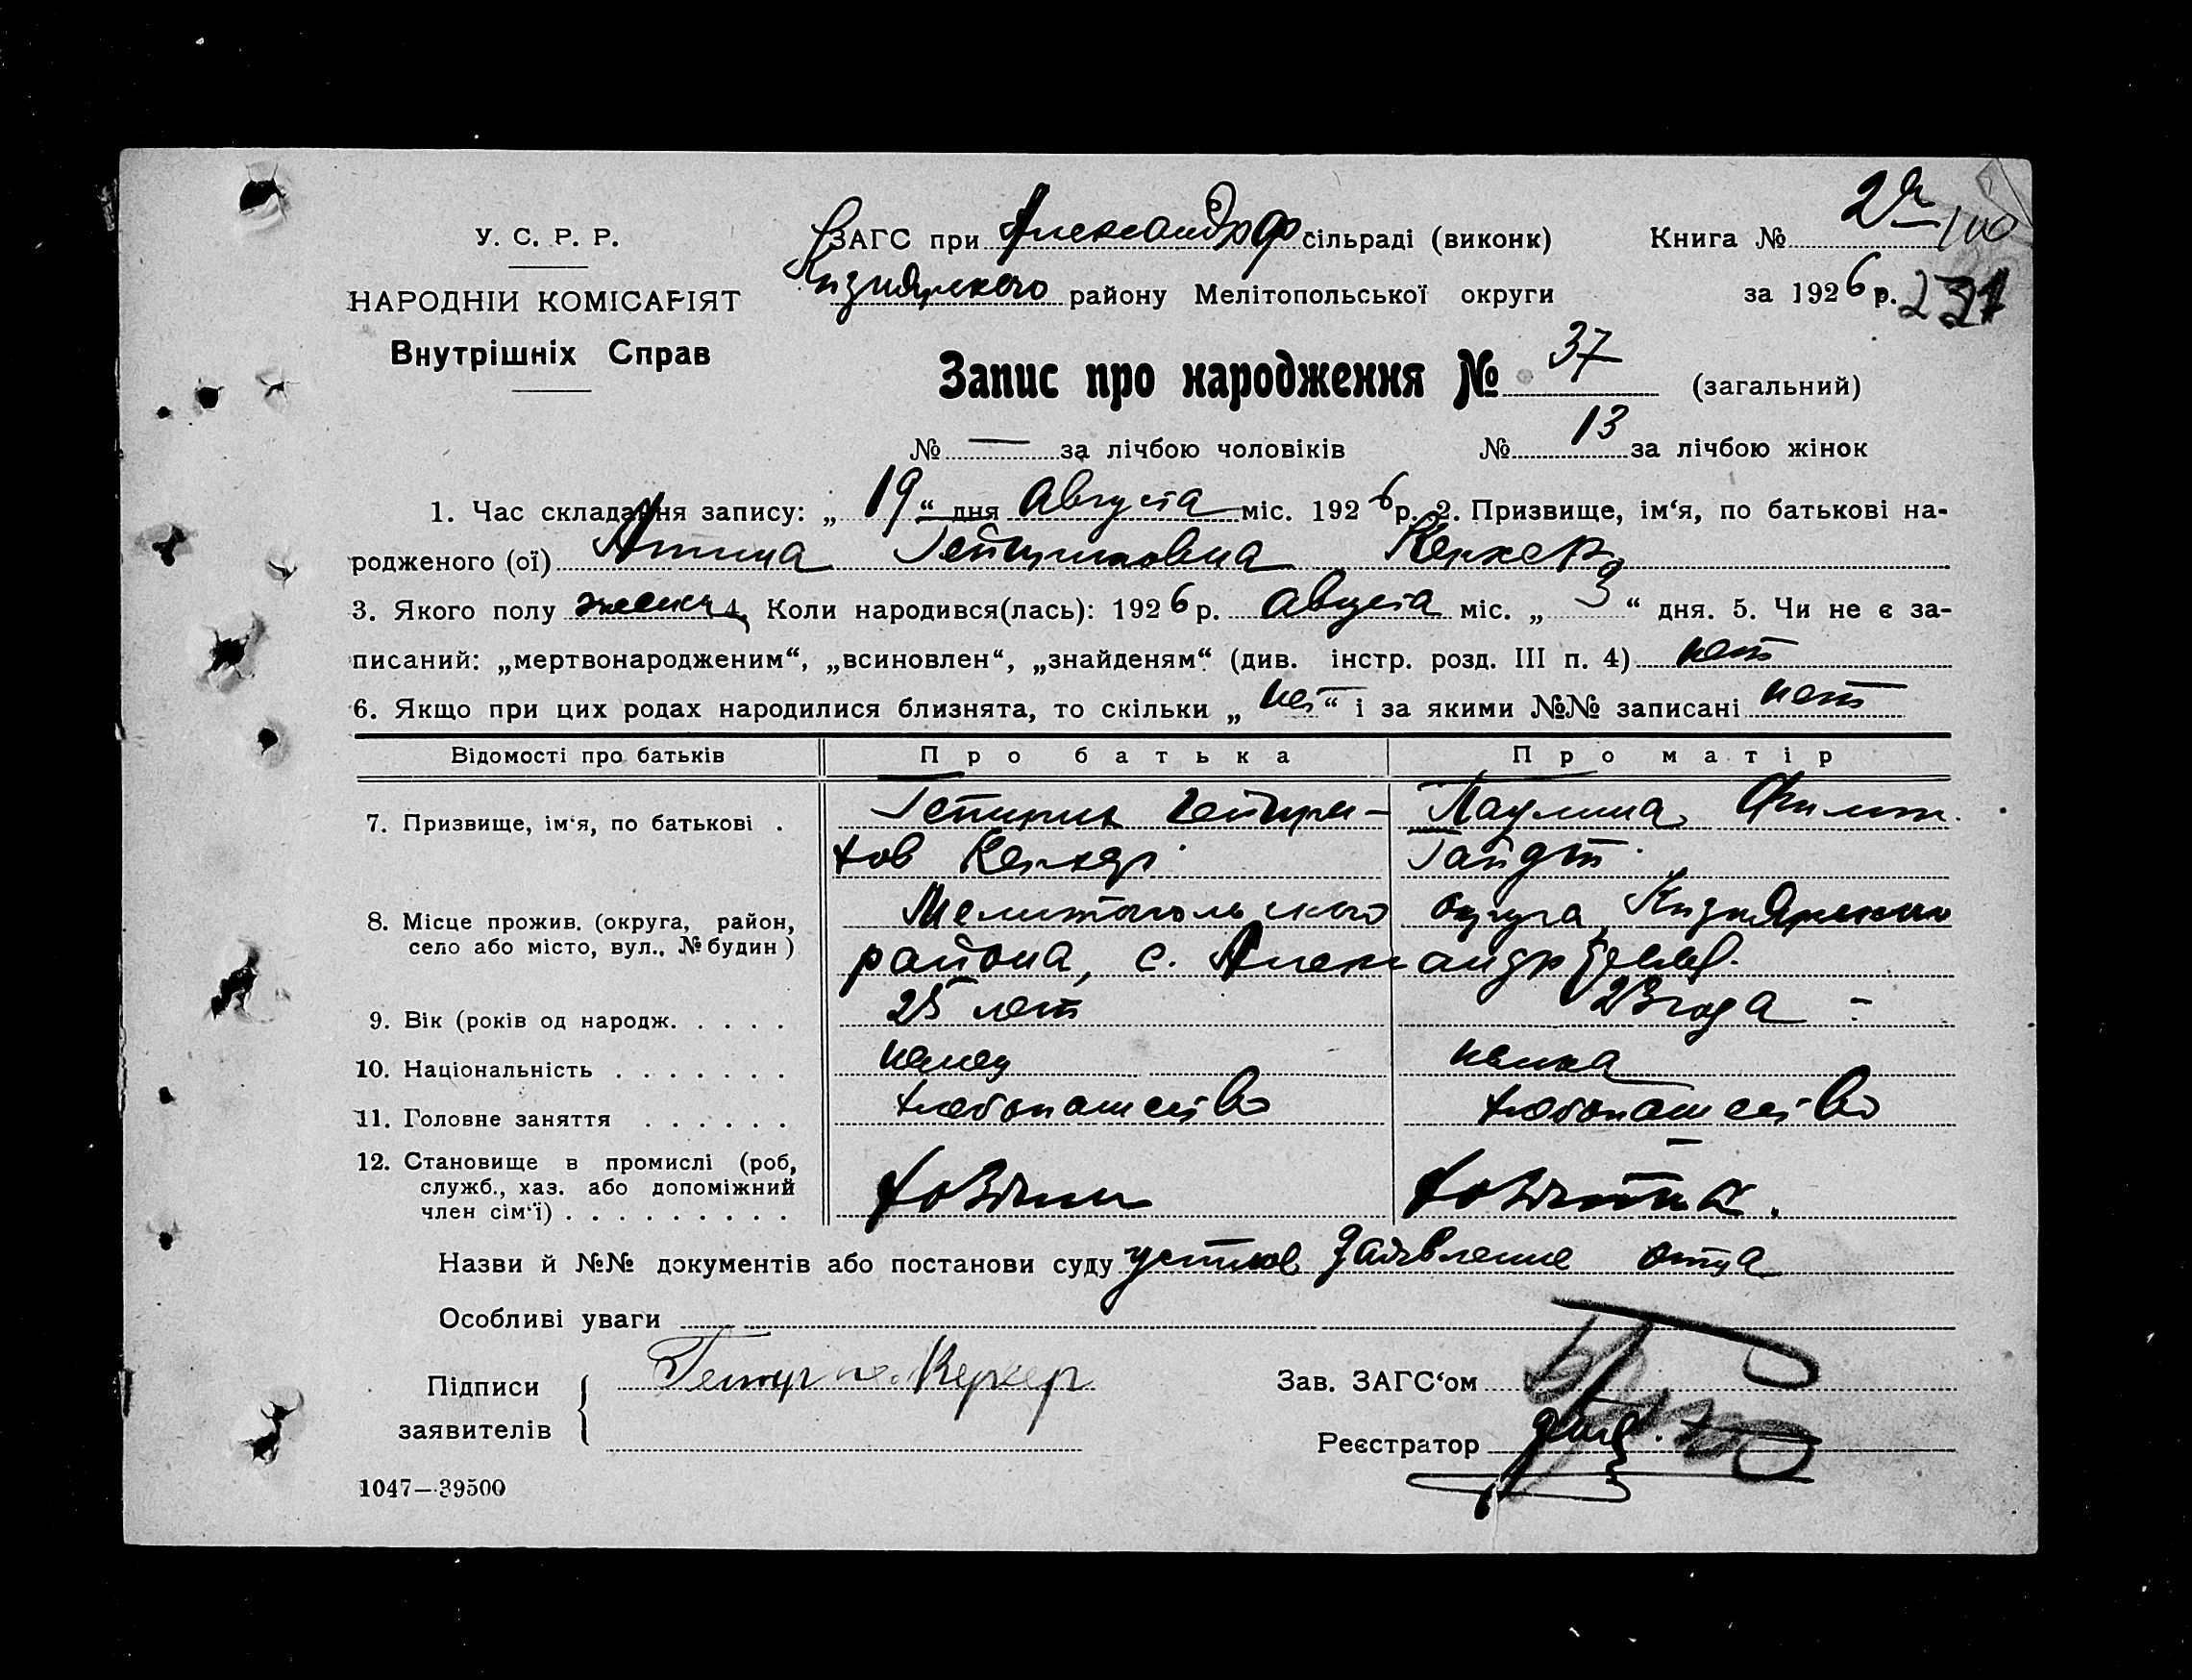 У. С. Р. Р.
НАРОДНІЙ КОМІСАРІЯТ
Внутрішніх Справ
ЗАГС при Александроф сільраді (виконк) Книга № 2я
Кизиярского району Мелітопольської округи за 1926 р. 231
Запис про народження № 37 (загальний)
№ — за лічбою чоловіків № 13 за лічбою жінок
1. Час складання запису: „19“ дня Августа міс. 1926 р. 2. Призвище, ім‘я, по батькові на-
родженого (ої) Керхер
3. Якого полу женск 4. Коли народився(лась): 1926 р. Августа міс. „3“ дня. 5. Чи не є за-
писаний: „мертвонародженим“, „всиновлен“, „знайденям“ (див. інстр. розд. III п. 4) нет
6. Якщо при цих родах народилися близнята, то скільки „нет“ і за якими №№ записані нет
Відомості про батьків Про батька Про матір
7. Призвище, ім‘я, по батькові . Паулина
Керхер Гайдт
8. Місце прожив. (округа, район, Мелитопольского округа, Кизиярского
село або місто, вул., № будин ) района, с.
9. Вік (років од народж. . . . . 25 лет 23 года
10. Національність . . . . . . . немец немка
11. Головне заняття . . . . . . хлебопашество хлебопашество
12. Становище в промислі (роб,
служб., хаз. або допоміжний хозяин хозяйка.
член сім‘ї) . . . . . . . . .
Назви й №№ документів або постанови суду устное заявление отца
Особливі уваги
Підписи Керхер Зав. ЗАГС‘ом
заявителів Реєстратор
1047—39500